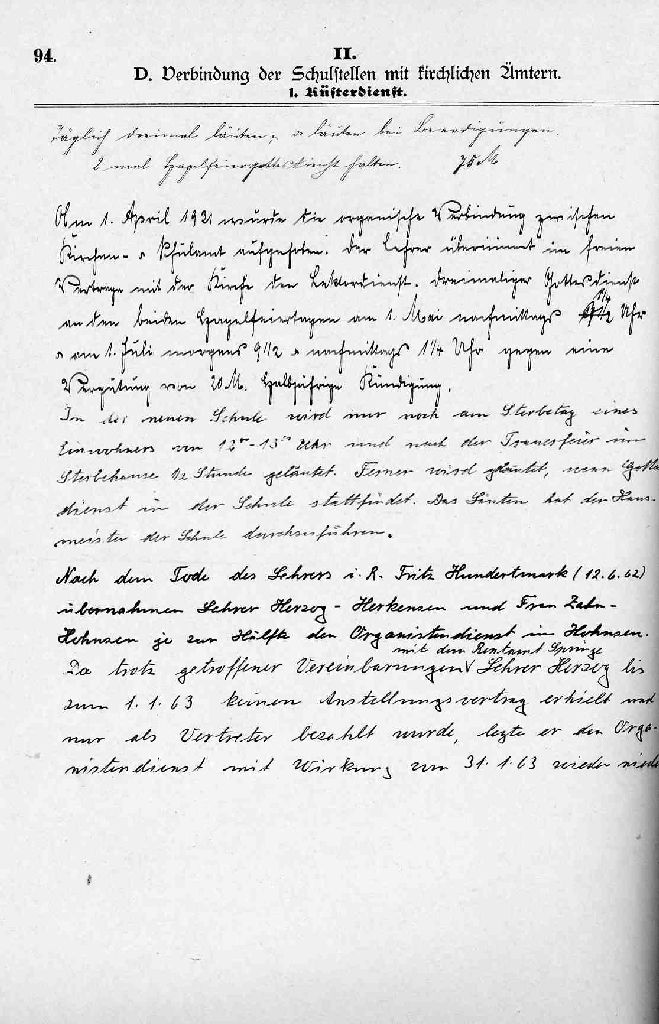 94.
II.
D. Verbindung der Schulstellen mit kirchlichen Ämtern.
1. Küsterdienst.
Täglich dreimal läuten, u läuten bei Beerdigungen.
2 mal Hagelfeiergottesdienst halten. 75 M
Am 1. April 1921 wurde die organische Verbindung zwischen
Kirchen- u Schulamt aufgehoben. Der Lehrer übernimmt im freien
Vertrage mit der Kirche den Lektordienst. Dreimaliger Gottesdienst
an den beiden Hagelfeiertagen am 1. Mai nachmittags 1/4 Uhr
u am 1. Juli morgens 9 1/2 u nachmittags 1 1/4 Uhr gegen eine
Vergütung von 20 M. Halbjährige Kündigung.
In der neuen Schule wird nur noch am Sterbetag eines
Einwohners von 12⁰⁰-13⁰⁰ Uhr und nach der Trauerfeier im
Sterbehause 1/2 Stunde geläutet. Ferner wird geläutet, wenn Gottes
dienst in der Schule stattfindet. Das Läuten hat der Haus-
meister der Schule durchzuführen.
Nach dem Tode des Lehrers i. R. Fritz Hundertmark (12.6.62)
übernahmen Lehrer Herzog - Herkensen und Frau Zahn-
Hohnsen je zur Hälfte den Organistendienst in Hohnsen.
mit dem Rentamt Springe
Da trotz getroffener Vereinbarungen Lehrer Herzog bis
zum 1.1.63 keinen Anstellungsvertrag erhielt und
nur als Vertreter bezahlt wurde, legte er den Orga-
nistendienst mit Wirkung vom 31.1.63 wieder niede